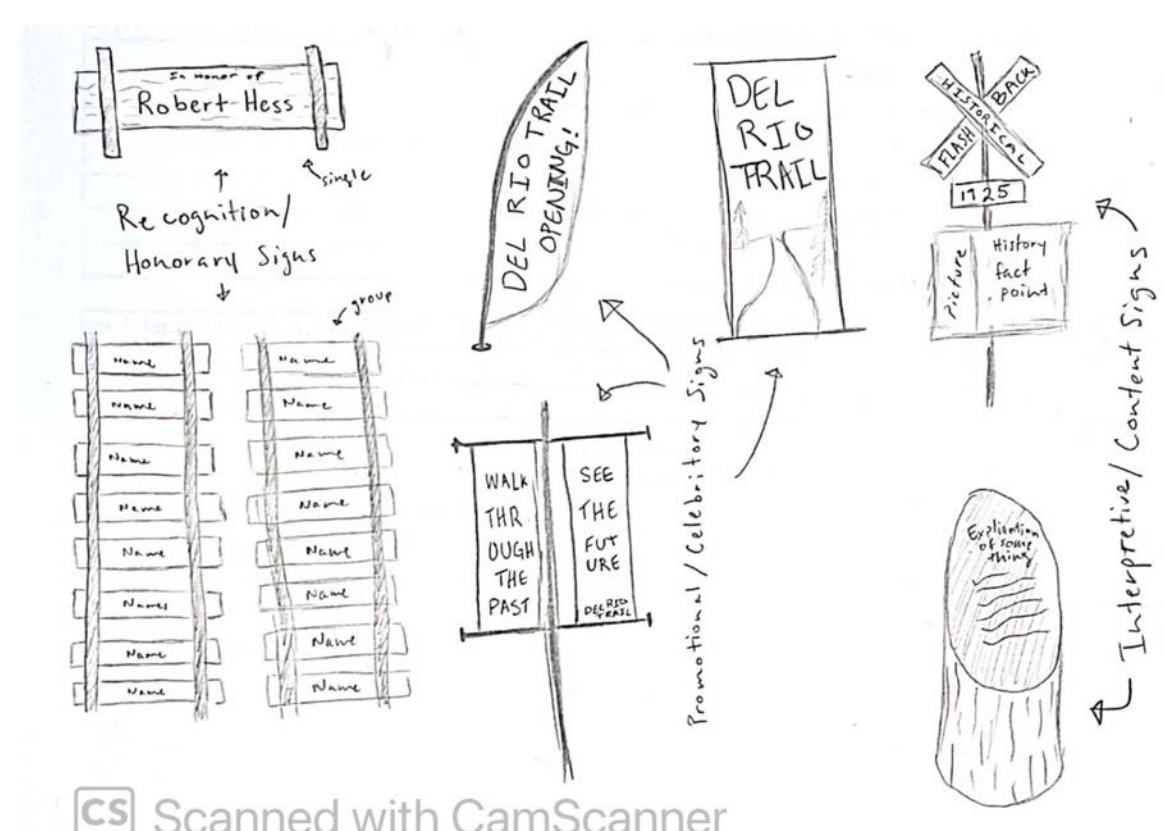 In Honor of
Robert Hess
single
Recognition/
Honorary Signs
group
Name
Name
Name
Name
Name
Names
Name
Name
Name
Name
Name
Name
Name
Name
Name
Name
DEL RIO TRAIL
OPENING!
WALK
THR
OUGH
THE
PAST
SEE
THE
FUT
URE
DEL RIO
TRAIL
Promotional / Celebritory Signs
DEL
RIO
TRAIL
HISTORICAL
FLASH BACK
1925
picture
History
fact
point
Interpretive/ Content Signs
Explination
of some
thing
CS Scanned with CamScanner